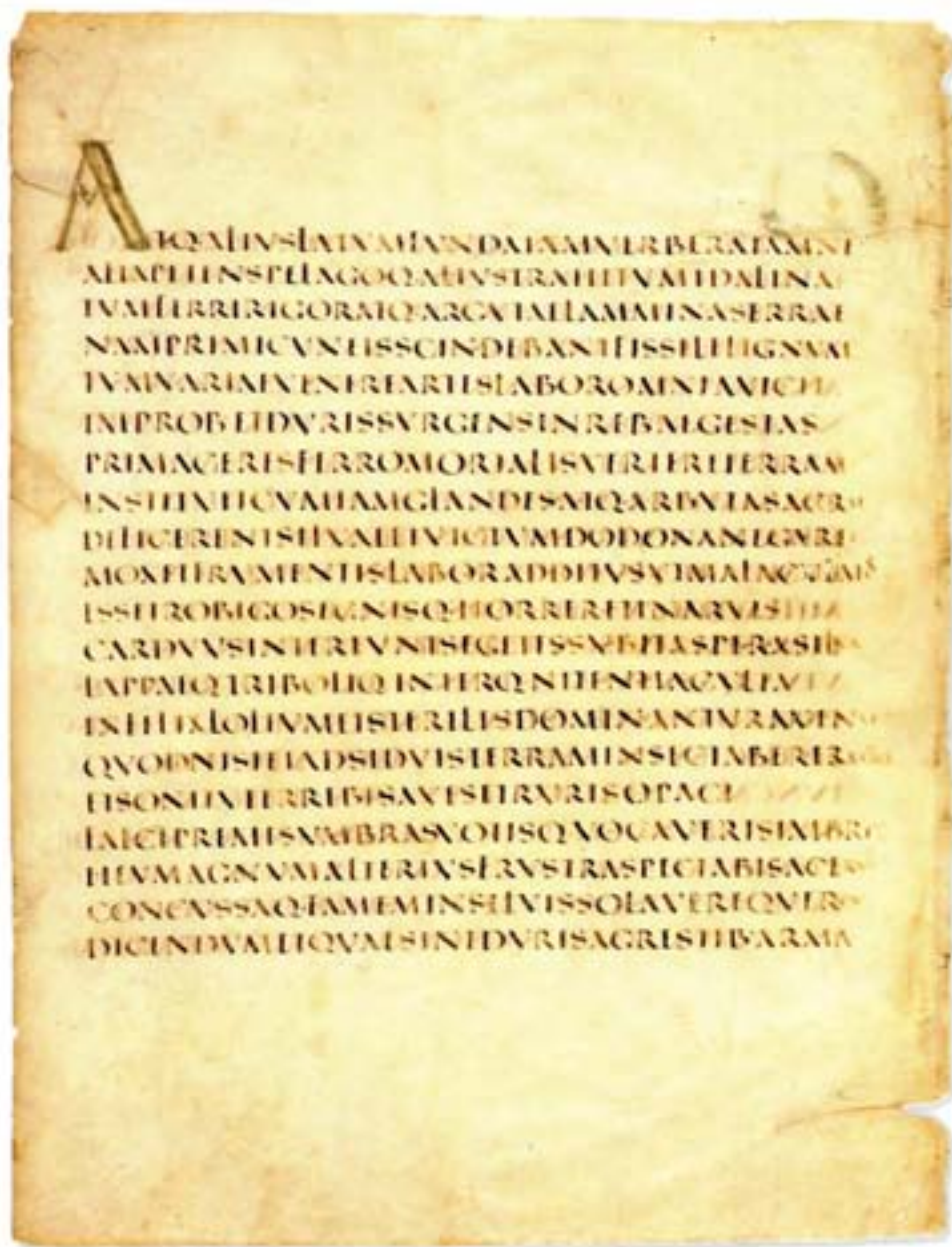 ATQALIVSLATVMFVNDAIAMVERBERATAMNE
ALTAPETENSPELAGOQALIVSTRAHITVMIDALINA
TVMFERRIRIGORATQARGVTAELAMMINASERRAE
NAMPRIMICVNEISSCINDEBANTFISSILELIGNVM
TVMVARIAEVENEREARTESLABOROMNIAVICIT
IMPROBETDVRISSVRGENSINREBAEGESTAS
PRIMACERESFERROMORTALISVERTERETERRAM
INSTITVITCVMIAMGLANDESATQARBVTASACR
DEFICERENTSILVAEETVICTVMDODONANEGARE
MOXETFRVMENTISLABORADDITVSVTMALACVLMOS
ESSETROBIGOSEGNISQHORRERETINARVIS
CARDVVSINTEREVNTSEGETESSVBITASPERASILV
LAPPAEQTRIBOLIQINTERQNITENTIACVLTA
INFELIXLOLIVMETSTERILISDOMINANTVRAVEN
QVODNISIETADSIDVISTERRAMINSECTABERER
ETSONITVTERREBISAVISETRVRISOPACI
FALCEPREMESVMBRASVOTISQVOCAVERISIMBRE
HEVMAGNVMALTERIVSFRVSTRASPECTABISACE
CONCVSSAQFAMEMINSILVISSOLAVEREQVER
DICENDVMETQVAESINTDVRISAGRESTIBVARMA